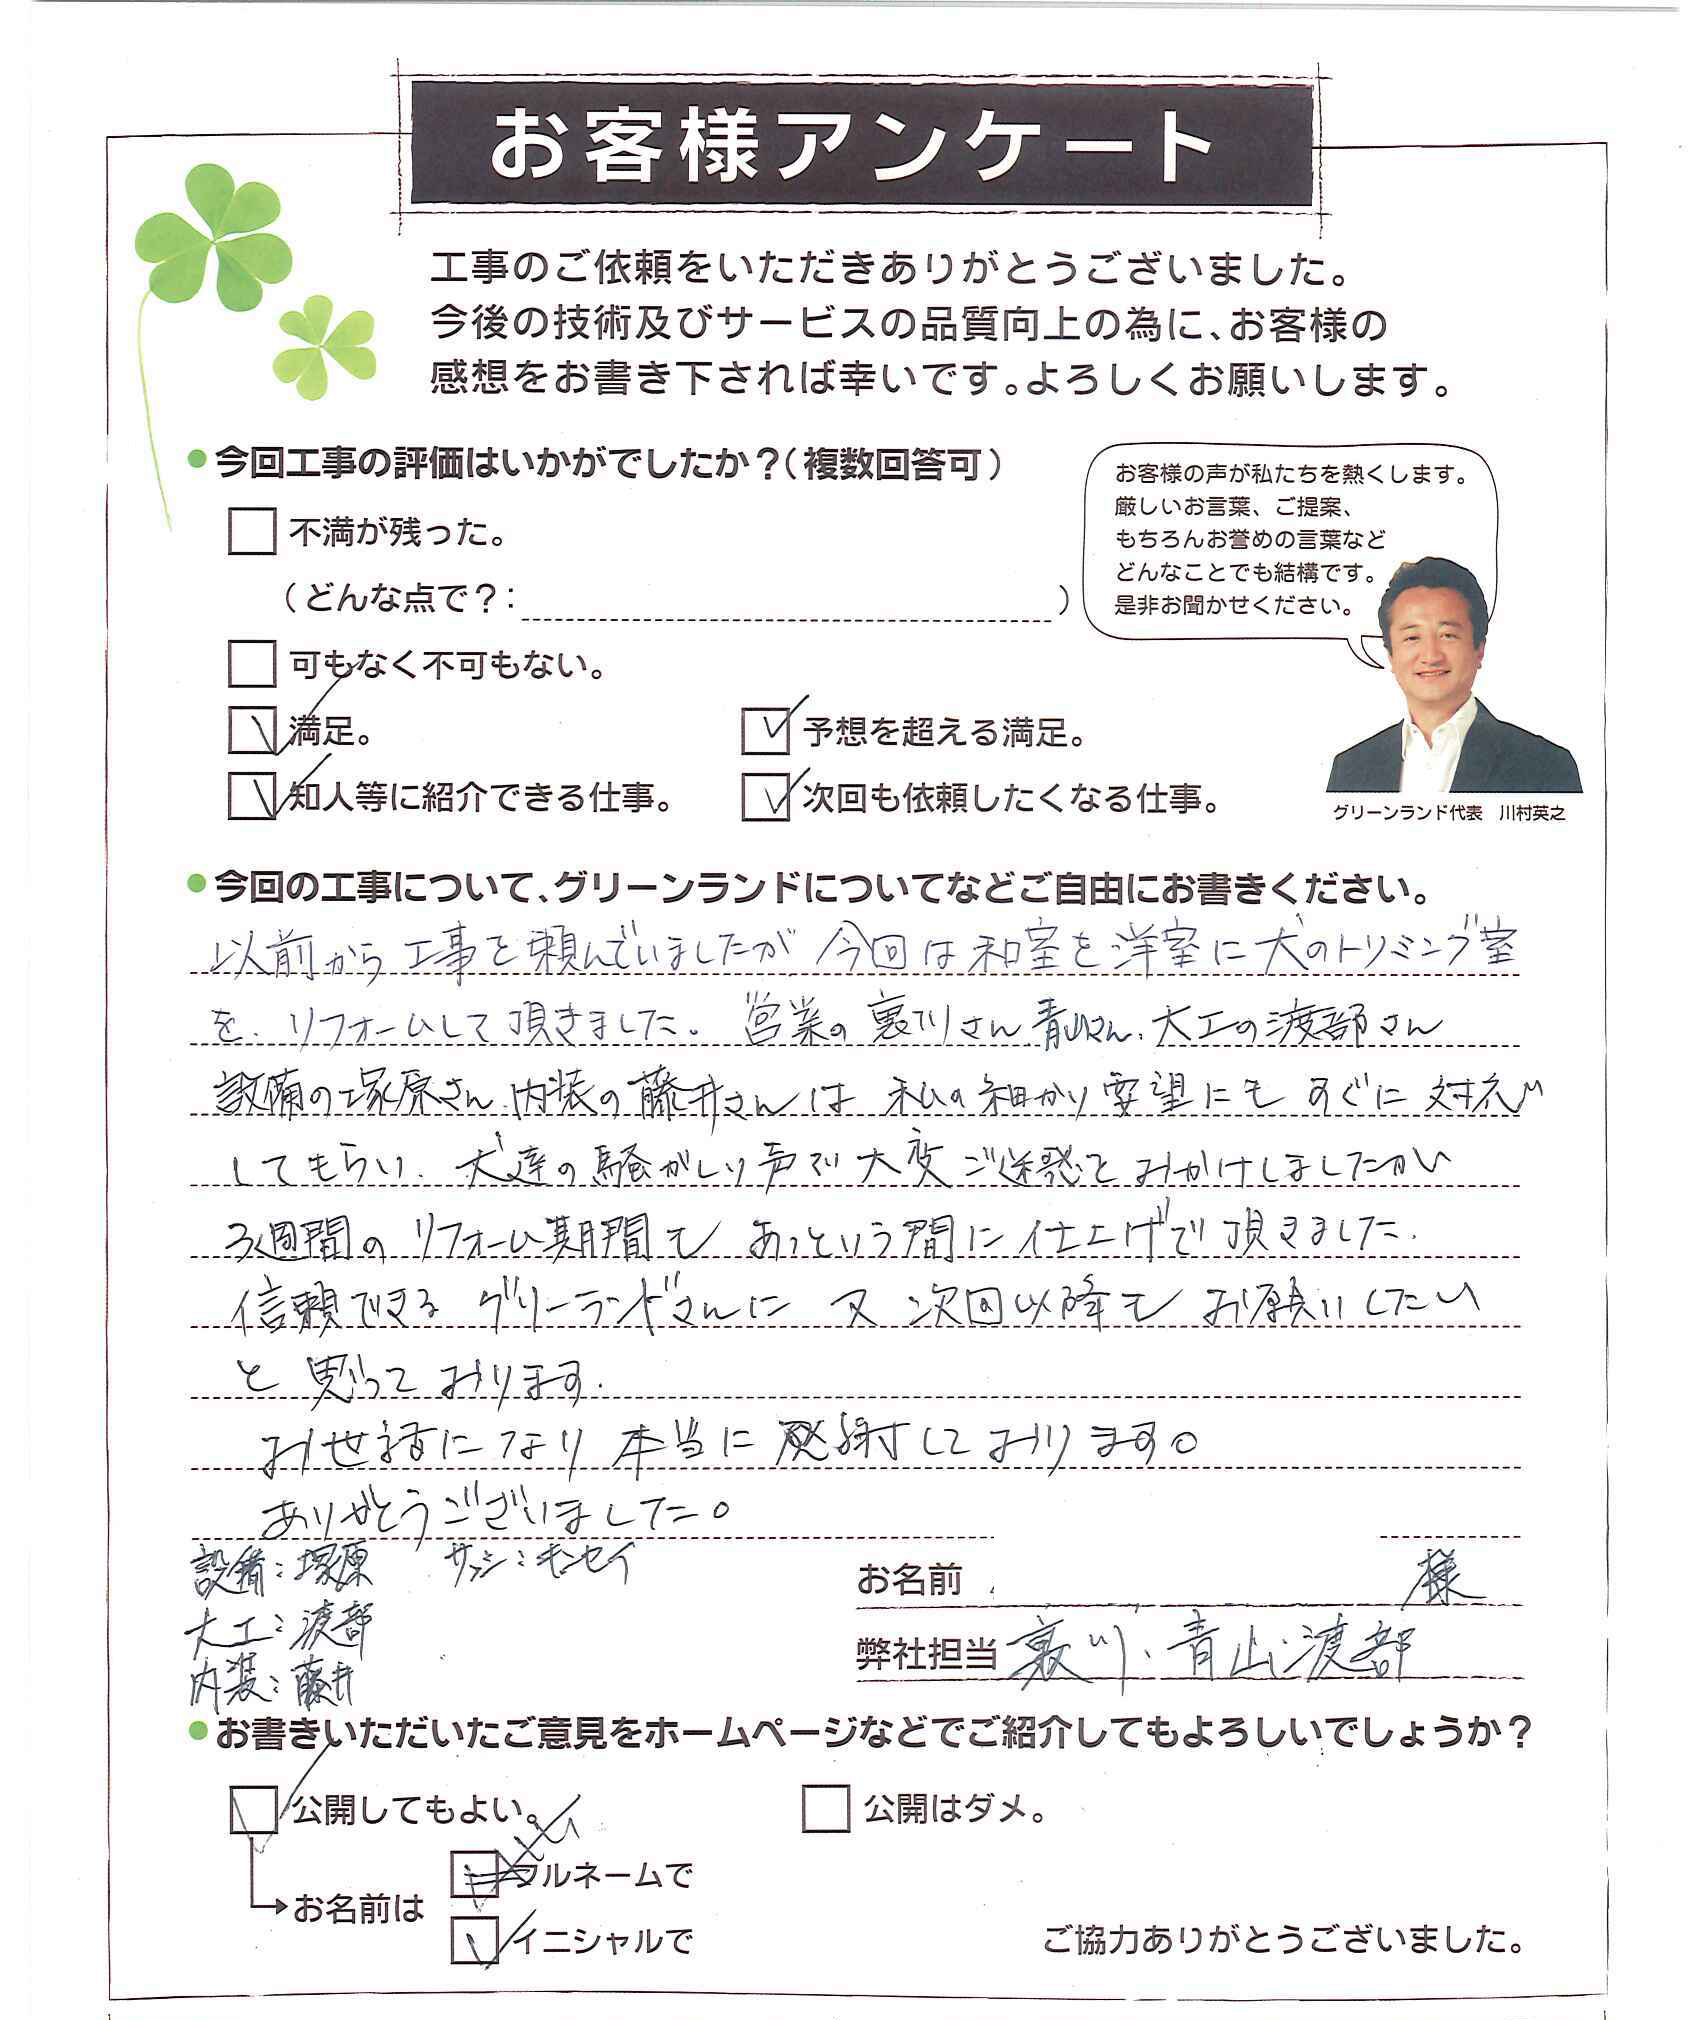 お客様アンケート
工事のご依頼をいただきありがとうございました。
今後の技術及びサービスの品質向上の為に、お客様の
感想をお書き下されば幸いです。よろしくお願いします。
今回工事の評価はいかがでしたか？（複数回答可）
不満が残った。
（どんな点で？：　　　）
可もなく不可もない。
満足。
予想を超える満足。
知人等に紹介できる仕事。
次回も依頼したくなる仕事。
お客様の声が私たちを熱くします。
厳しいお言葉、ご提案、
もちろんお誉めの言葉など
どんなことでも結構です。
是非お聞かせください。
グリーンランド代表　川村英之
今回の工事について、グリーンランドについてなどご自由にお書きください。
以前から工事を頼んでいましたが 今回は和室を洋室に犬のトリミング室
を、リフォームして頂きました。営業の裏川さん 青山さん、大工の渡部さん
設備の塚原さん、内装の藤井さんは 私の細かい要望にも すぐに対応
してもらい、犬達の騒がしい声で大変ご迷惑をおかけしましたが
3週間のリフォーム期間も あっという間に仕上げて頂きました。
信頼できる グリーランドさんに 又 次回以降も お願いしたい
と思っております。
お世話になり 本当に感謝しております。
ありがとうございました。
設備：塚原　サッシ：キンセイ
大工：渡部
内装：藤井
お名前　　　様
弊社担当 裏川、青山、渡部
お書きいただいたご意見をホームページなどでご紹介してもよろしいでしょうか？
公開してもよい。
公開はダメ。
お名前は
フルネームで
イニシャルで
ご協力ありがとうございました。